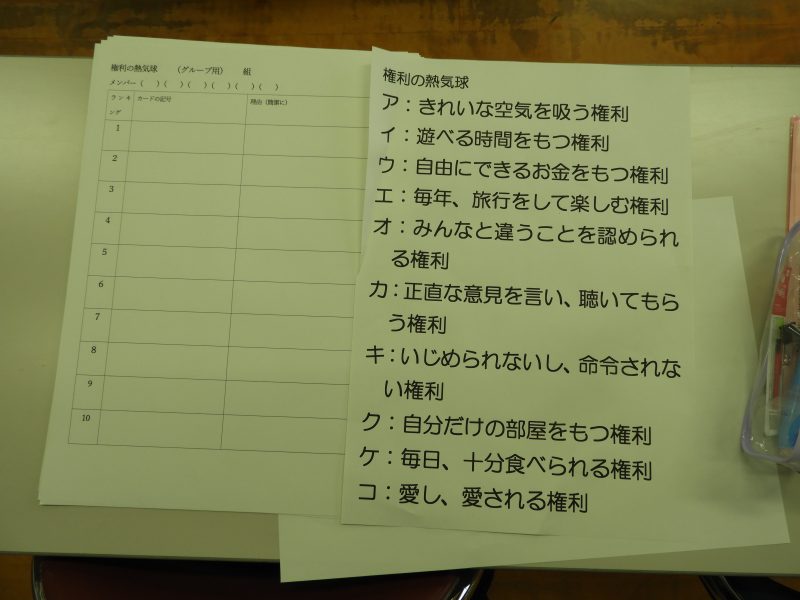 権利の熱気球 （グループ用） 組
メンバー（ ）（ ）（ ）（ ）（ ）（ ）
ランキ
ング
カードの記号
理由（簡潔に）
1
2
3
4
5
6
7
8
9
10
権利の熱気球
ア：きれいな空気を吸う権利
イ：遊べる時間をもつ権利
ウ：自由にできるお金をもつ権利
エ：毎年、旅行をして楽しむ権利
オ：みんなと違うことを認められ
る権利
カ：正直な意見を言い、聴いてもら
う権利
キ：いじめられないし、命令されな
い権利
ク：自分だけの部屋をもつ権利
ケ：毎日、十分食べられる権利
コ：愛し、愛される権利